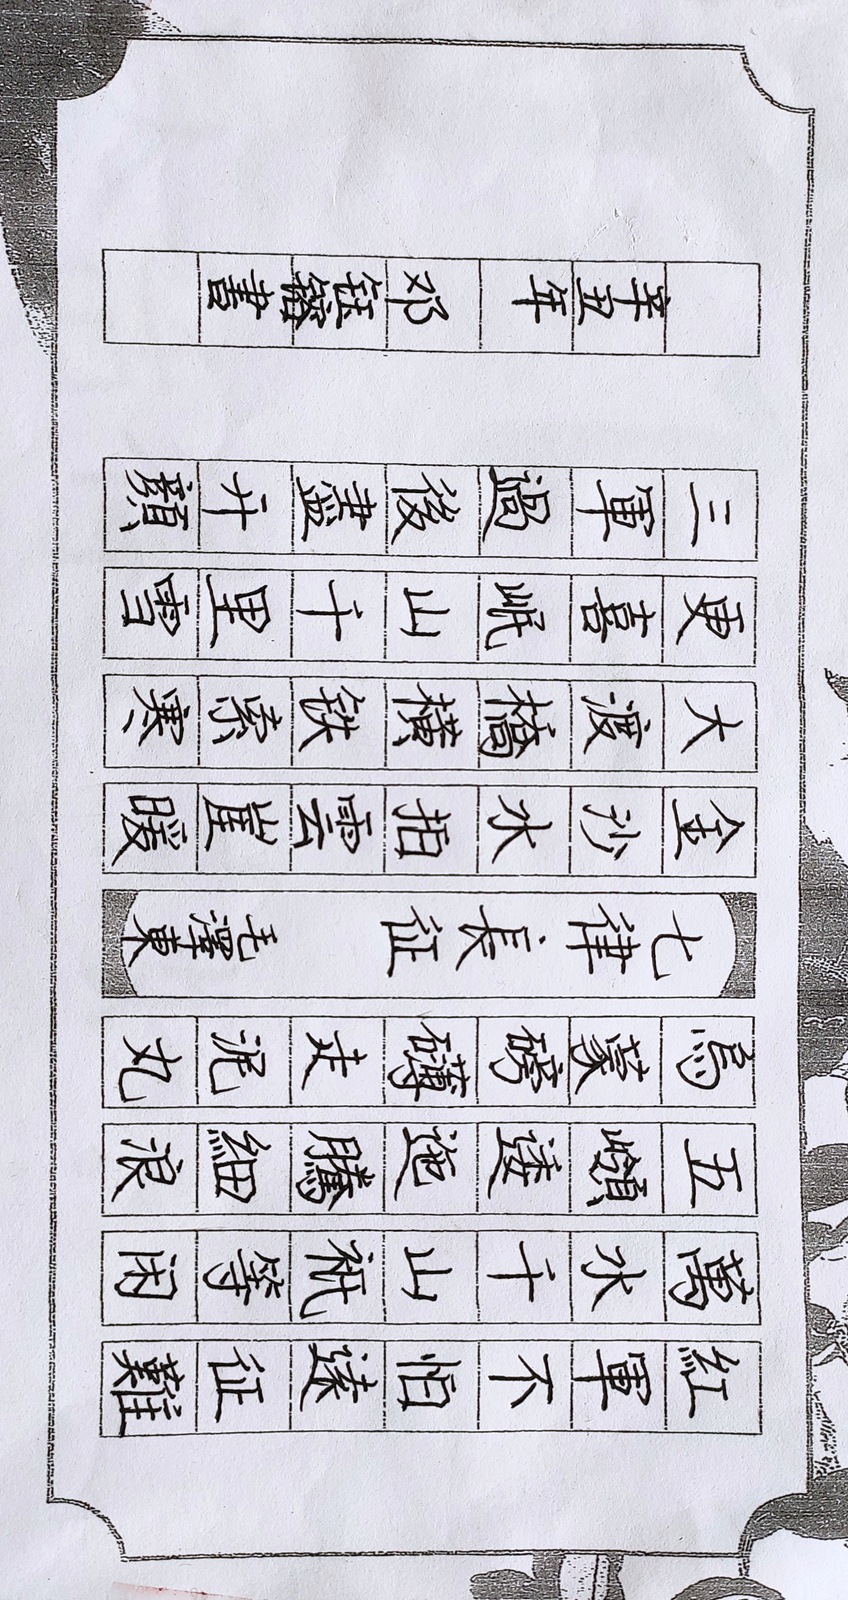 紅軍不怕遠征難
萬水千山祇等闲
五嶺逶迤騰細浪
烏蒙磅礴走泥丸
七律長征 毛澤東
金沙水拍雲崖暖
大渡橋横铁索寒
更喜岷山千里雪
三軍過後盡开顏
辛丑年 邓鈺書